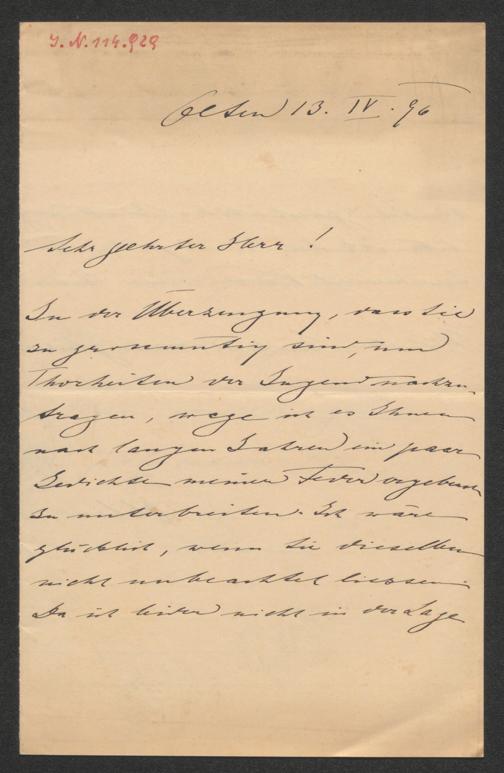 J. N. 114.929
Olten 13. IV. 96
Sehr geehrter Herr!
In der Überzeugung, dass Sie
zu grossmütig sind, um
Thorheiten der Jugend nachzu-
tragen, wage ich es Ihnen
nach langen Jahren ein paar
Gedichte meiner Feder ergebenst
zu unterbreiten. Ich wäre
glücklich, wenn Sie dieselben
nicht unbeachtet liessen.
Da ich leider nicht in der Lage